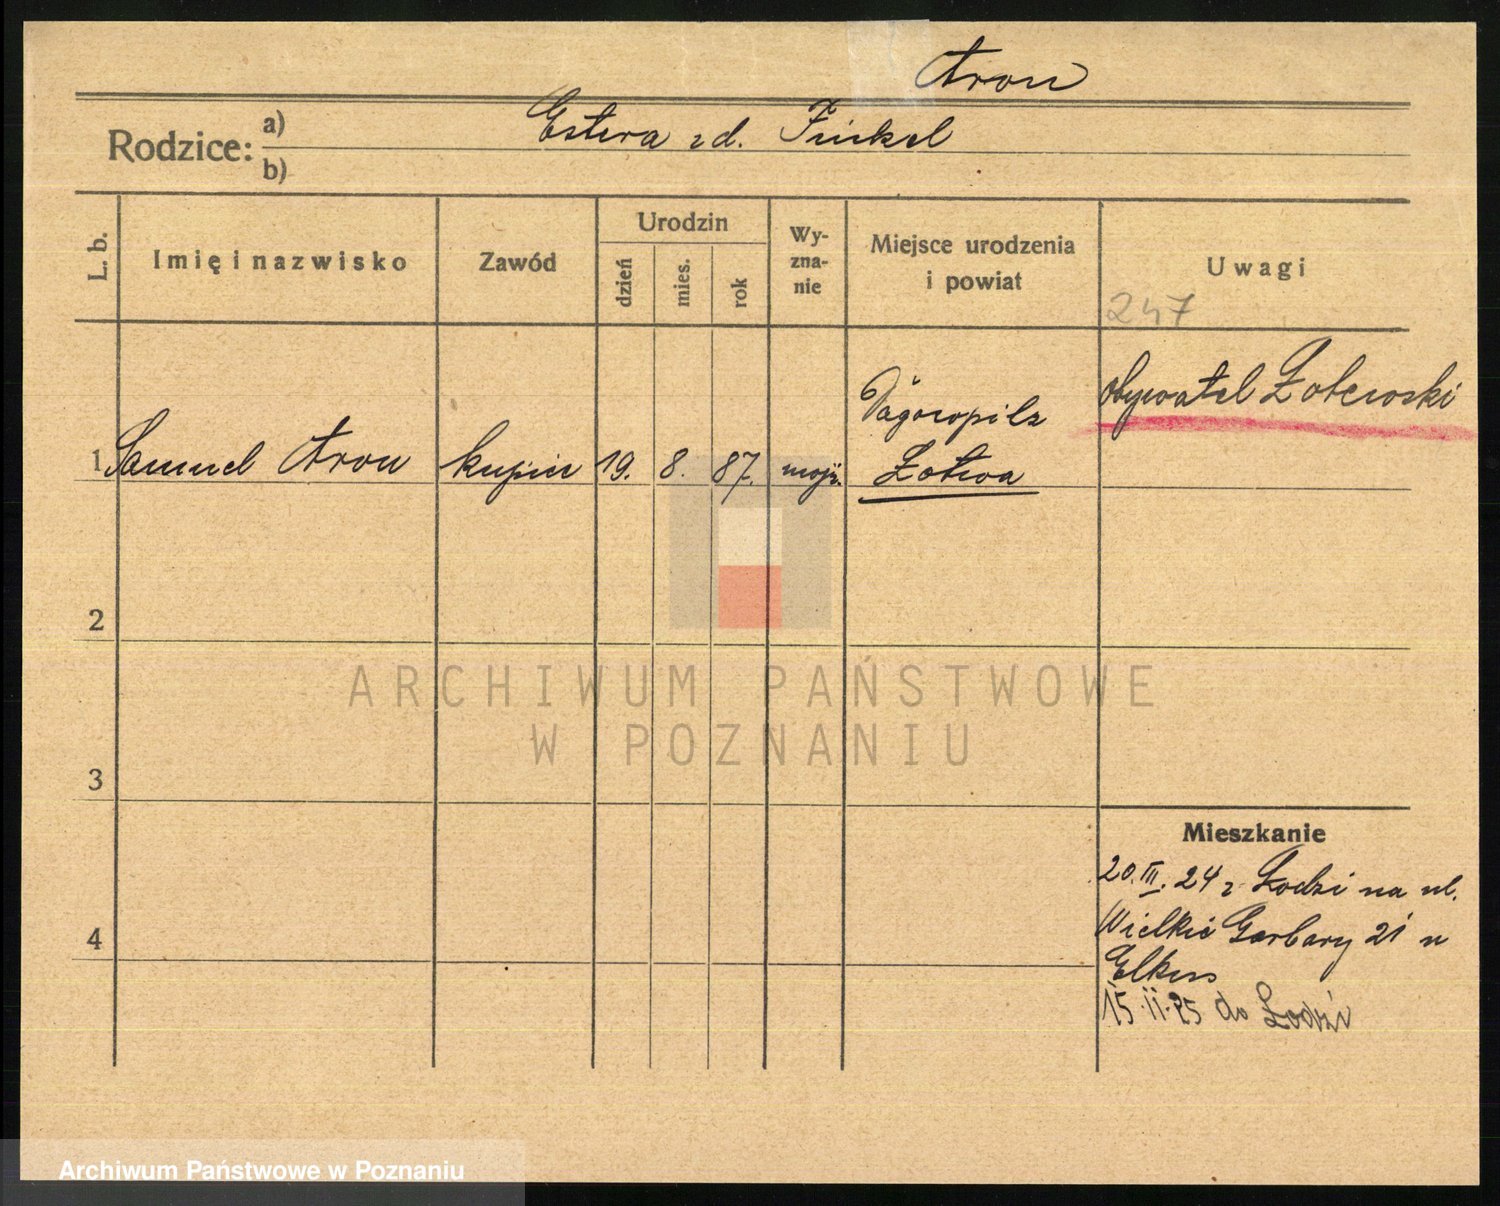 Aron
Rodzice: a) Estera zd. Finkel
b)
L. b.
Imię i nazwisko
Zawód
Urodzin
dzień
mies.
rok
Wy-
zna-
nie
Miejsce urodzenia
i powiat
Uwagi
247
1 Samuel Aron kupiec 19. 8. 87. mojż.
Łotwa
obywatel Łotewski
2
3
4
Mieszkanie
20. III. 24 z Łodzi na ul.
Wielkie Garbary 21 u
15. II. 25 do Łodzi
ARCHIWUM PAŃSTWOWE
W POZNANIU
Archiwum Państwowe w Poznaniu